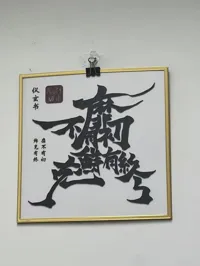 靡不有初
鲜克有终
仪玄书
靡不有初
鲜克有终